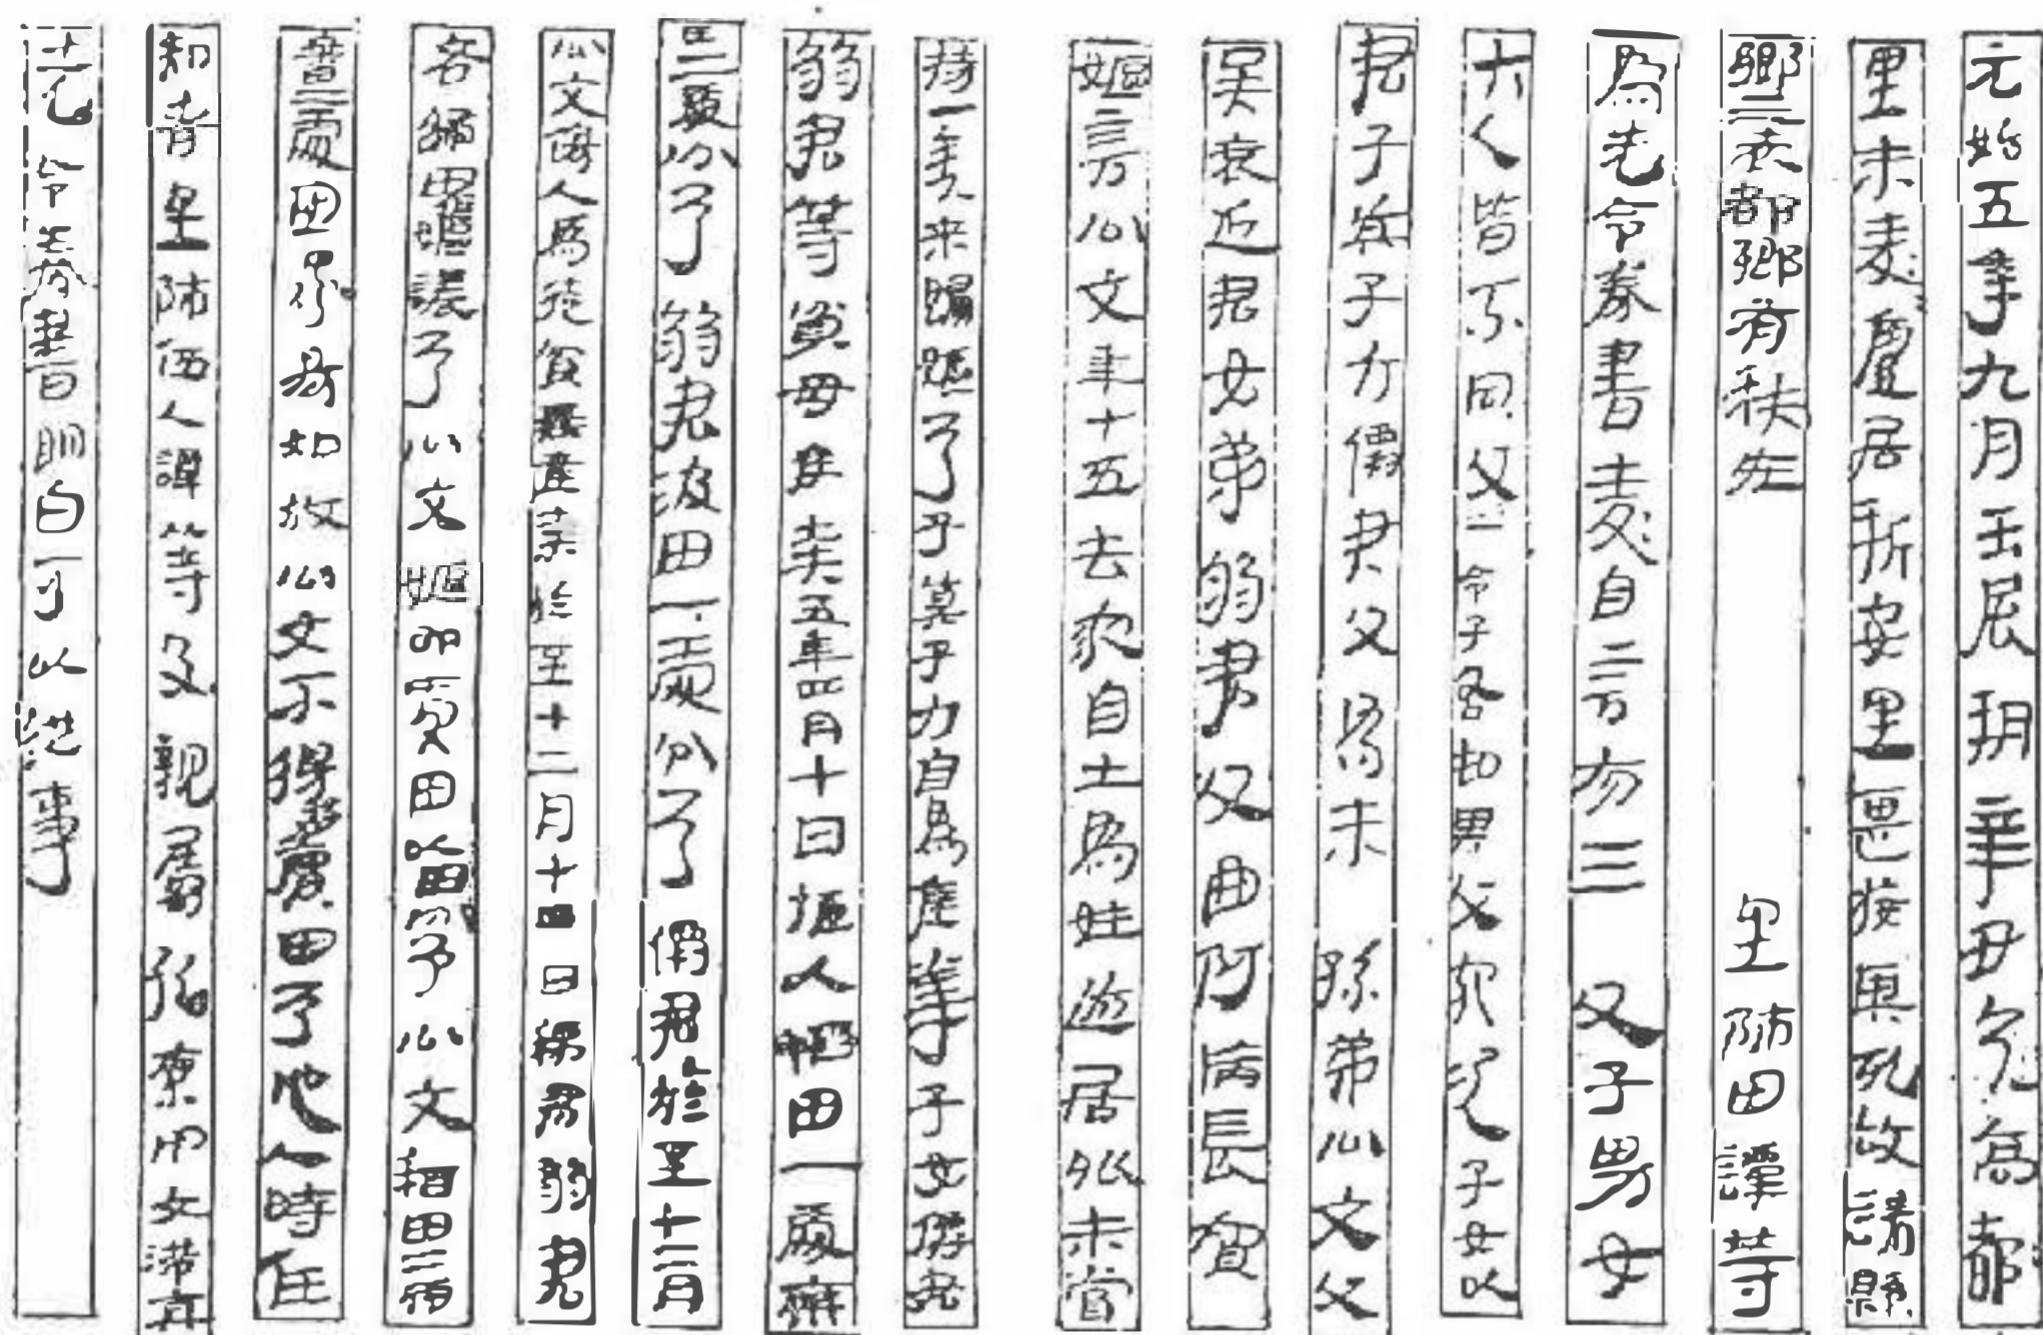 元始五年九月壬辰朔辛丑亥高都
里朱夌廬居新安里甚疾其死故請縣
鄉三老都鄉有秩左 里師田譚等
為先令券書夌自言有三父子男女
六人皆不同父欲令子各知其父家次子女以
君子真子方僊君父為朱孫弟公文父
吳衰近君女弟弱君父曲阿病長賓
嫗言公文年十五去家自出為姓遂居外未嘗
持一錢來歸嫗予子真子方自為產業子女僊君
弱君等貧毋產業五年四月十日嫗以稻田一處桑
田二處分予弱君波田一處分予僊君於至十二月
公文傷人為徒貧無產業於至十二月十一日僊君弱君
各歸田於嫗讓予公文嫗即受田以田分予公文稻田二處
桑田二處田界易如故公文不得移賣田予他人時任
知者里師伍人譚等及親屬孔聚田文滿真
先令券書明白可以從事